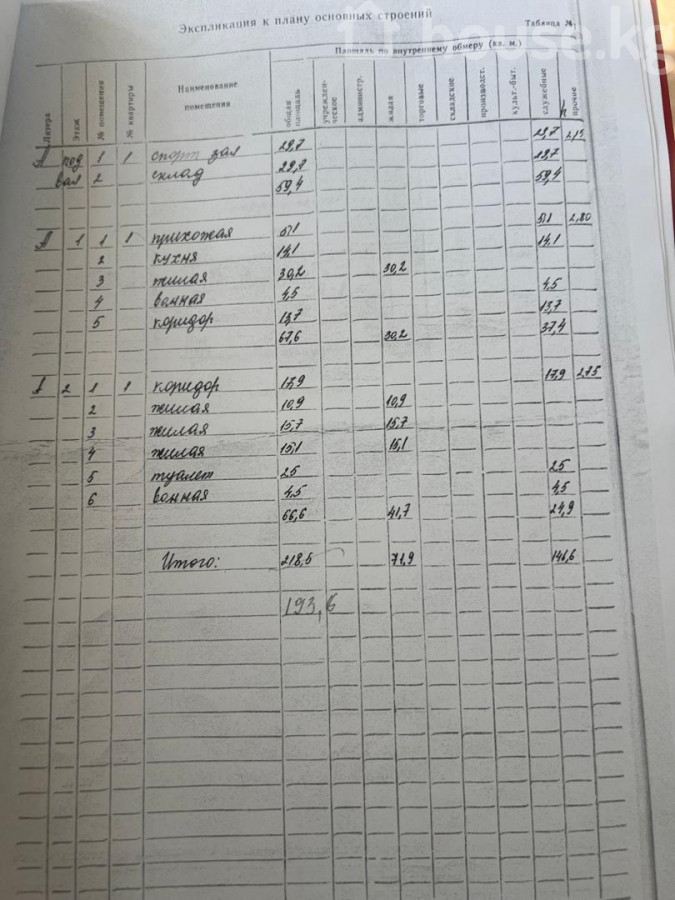 house.kg
Экспликация к плану основных строений
Таблица №1
Площадь по внутреннему обмеру (кв. м.)
Литера Этаж № помещения № квартиры Наименование помещения общая площадь учрежден-ческое администр. жилая торговые складские производст. культ.-быт. служебные h прочие
А под 1 1 спорт зал 29,7 29,7 2,15
вал 2 склад 29,7 29,7
59,4 59,4
А 1 1 1 прихожая 5,1 5,1 2,80
2 кухня 14,1 14,1
3 жилая 30,2 30,2
4 ванная 4,5 4,5
5 коридор 13,7 13,7
67,6 30,2 37,4
А 2 1 1 коридор 17,9 17,9 2,75
2 жилая 10,9 10,9
3 жилая 15,7 15,7
4 жилая 15,1 15,1
5 туалет 2,5 2,5
6 ванная 4,5 4,5
66,6 41,7 24,9
Итого: 218,5 71,9 146,6
193,6